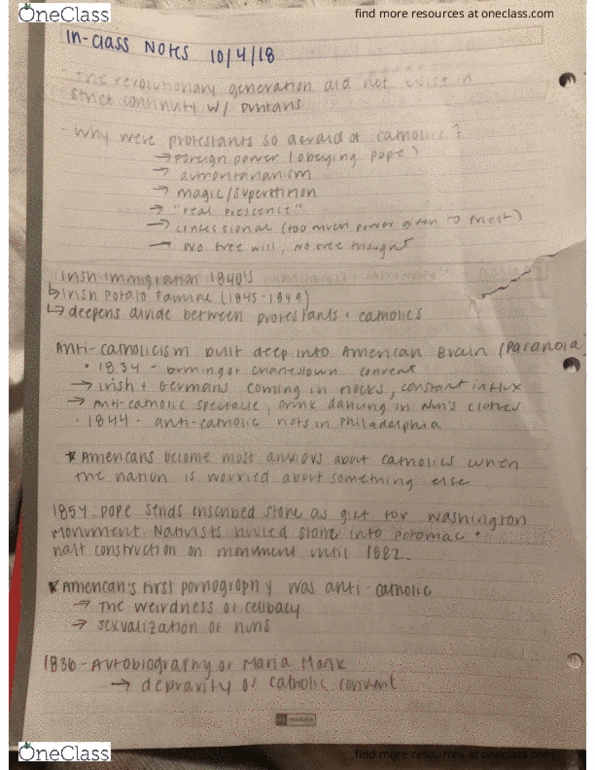 OneClass
find more resources at oneclass.com
In-class Notes 10/4/18
- The revolutionary generation did not exist in
strict continuity w/ puritans
- Why were protestants so afraid of catholics?
→ Foreign power (obeying pope)
→ authoritarianism
→ magic/superstition
→ "real prescence"
→ confessional (too much power given to priest)
→ No free will, no free thought
Irish Immigration 1840's
↳ Irish Potato Famine (1845-1849)
↳ deepens divide between protestants + catholics
Anti-catholicism built deep into American Brain (Paranoia)
• 1834 - burning of charlestown convent
→ Irish + Germans coming in flocks, constant influx
→ Anti-catholic spectacle, drunk dancing in Nun's clothes
• 1844 - anti-catholic riots in Philadelphia
* Americans become most anxious about catholics when
the nation is worried about something else
1854: Pope sends inscribed stone as gift for Washington
Monument. Nativists hurled stone into Potomac +
halt construction on monument until 1882.
* American's first pornography was anti-catholic
→ The weirdness of celibacy
→ sexualization of nuns
1836 - Autobiography of Maria Monk
→ depravity of catholic convent
OneClass
find more resources at oneclass.com